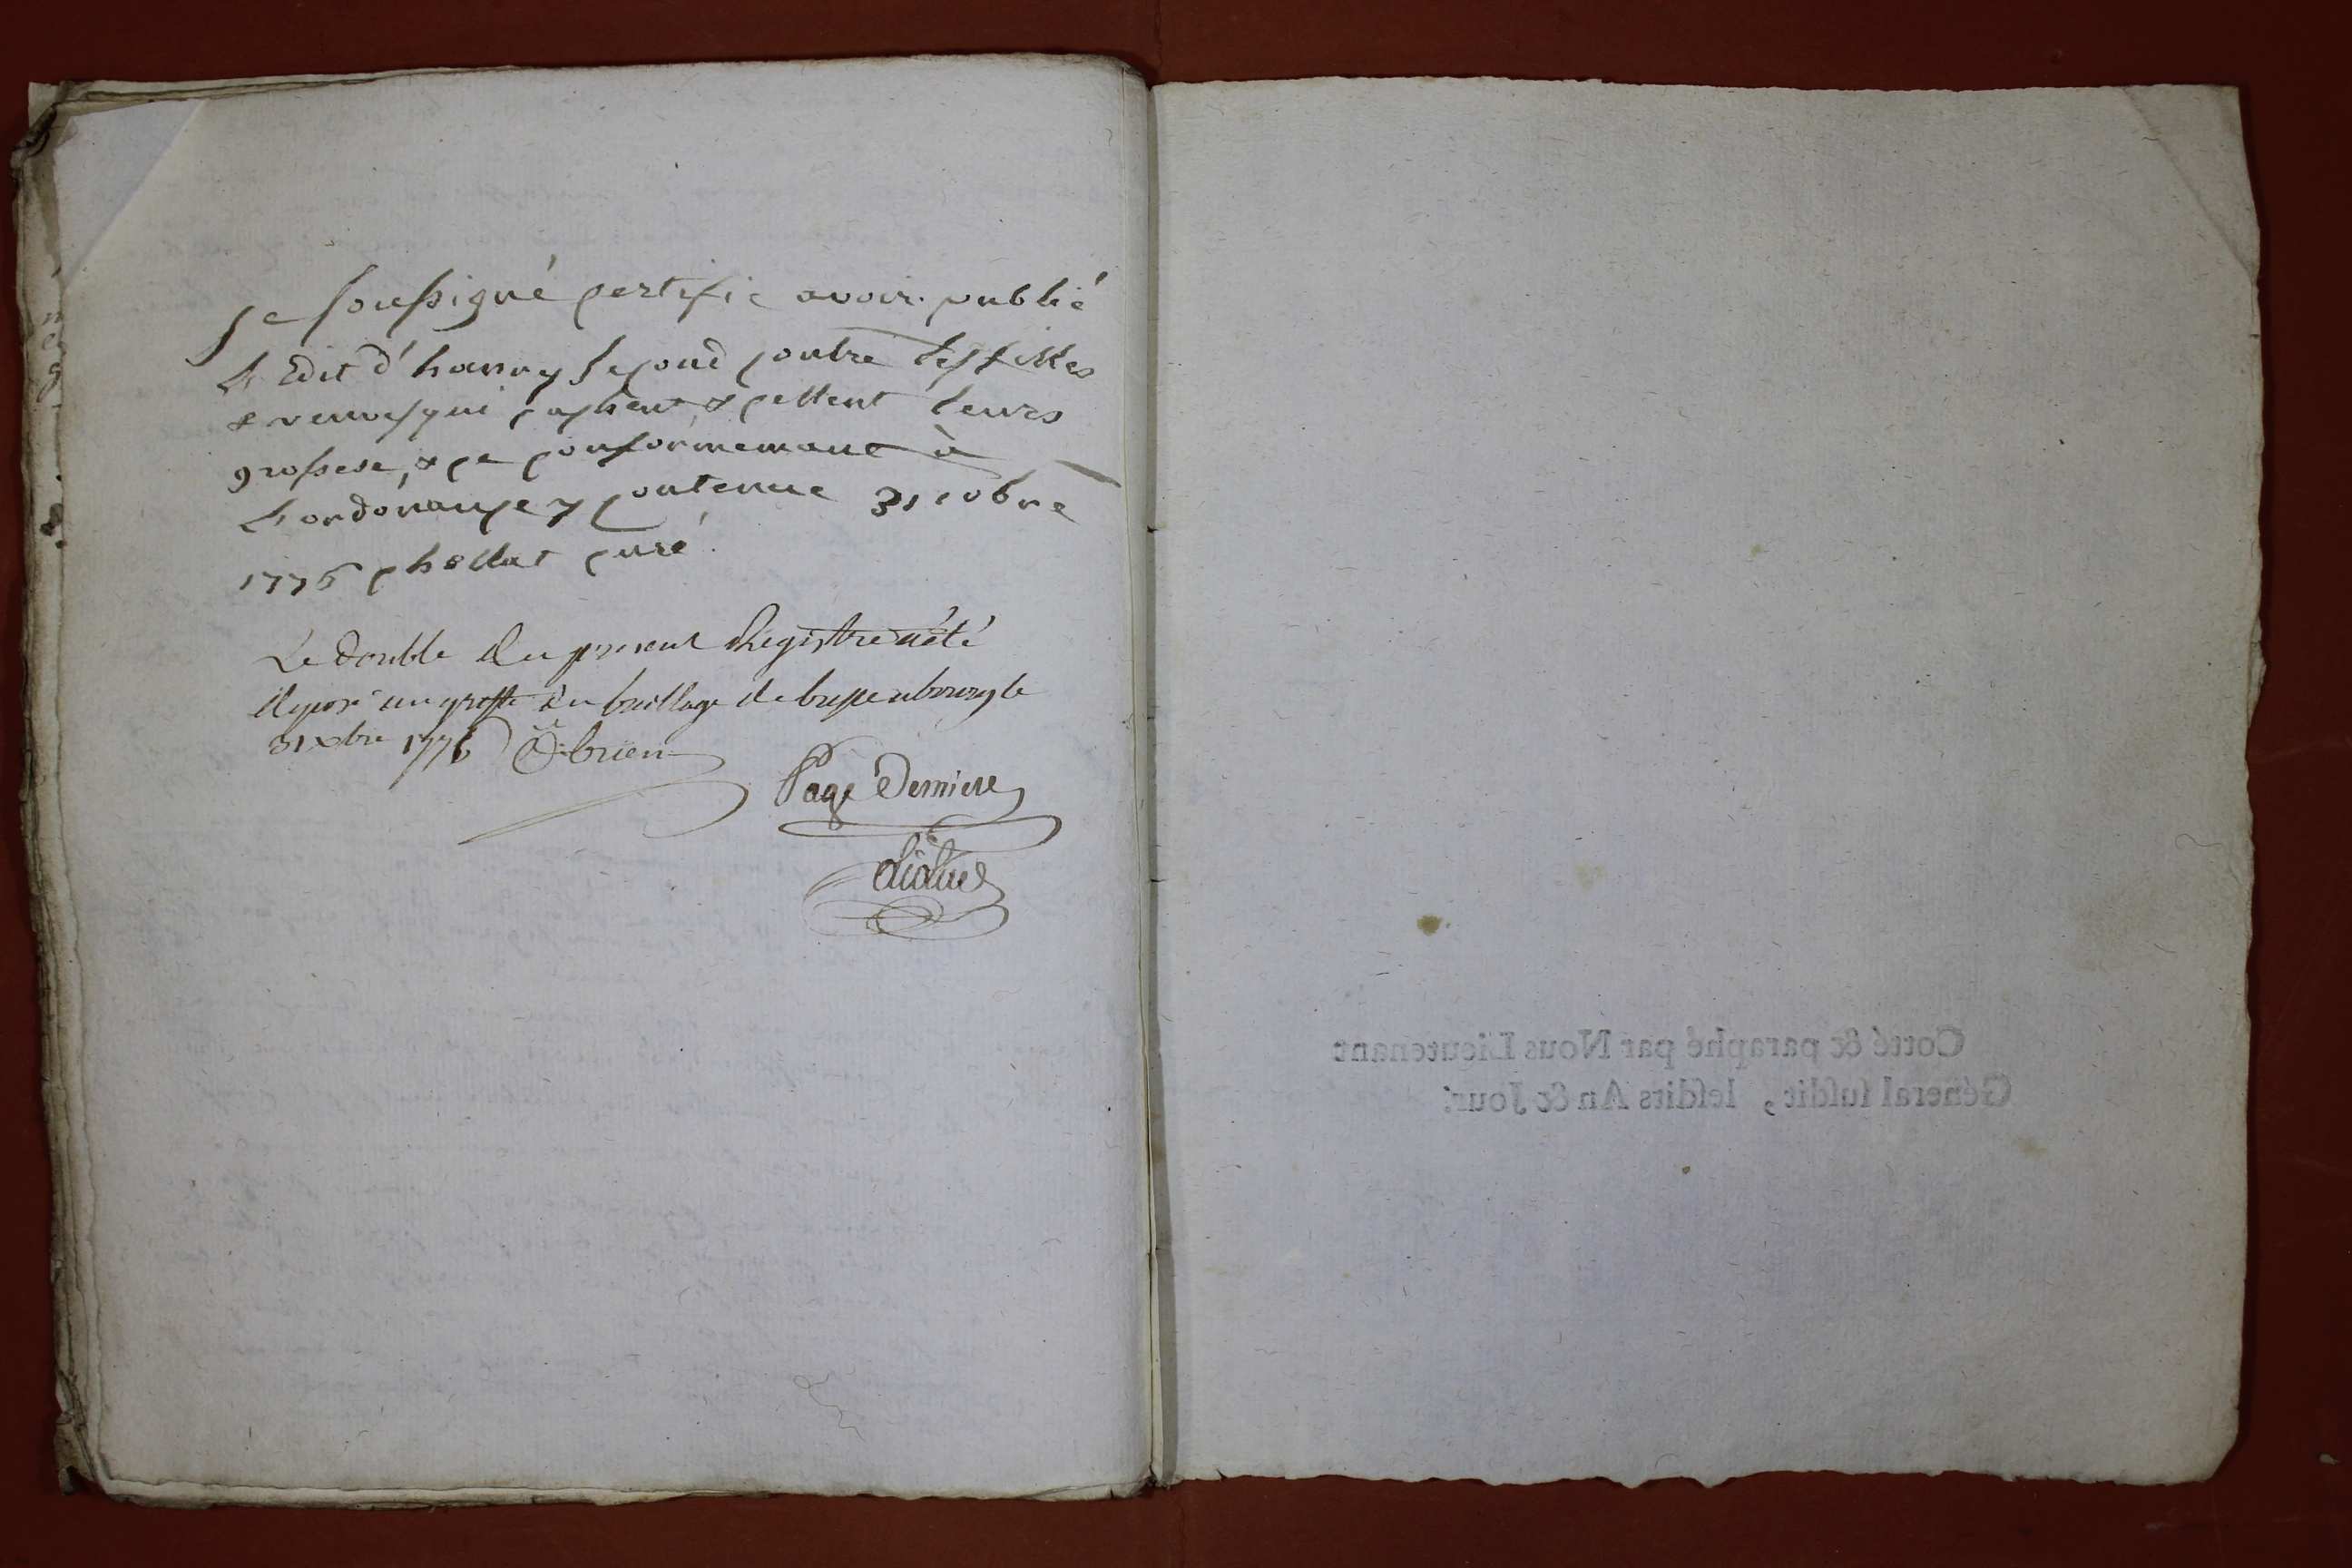 Je soussigné certifie avoir publié
L'Edit d'hanry second contre les filles
& veuves qui cachent & cellent leurs
grossese, & ce conformement à
L'ordonance y contenue 31 10bre
1776 chollat curé
Le double du present Registre a été
deposé au greffe du baillage de
31 xbre 1776 O-brien
Page Derniere
Cotté & paraphé par Nous Lieutenant
Général susdit, lesdits An & Jour.